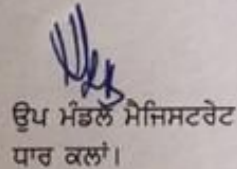 ਉਪ ਮੰਡਲ ਮੈਜਿਸਟਰੇਟ
ਧਾਰ ਕਲਾਂ।